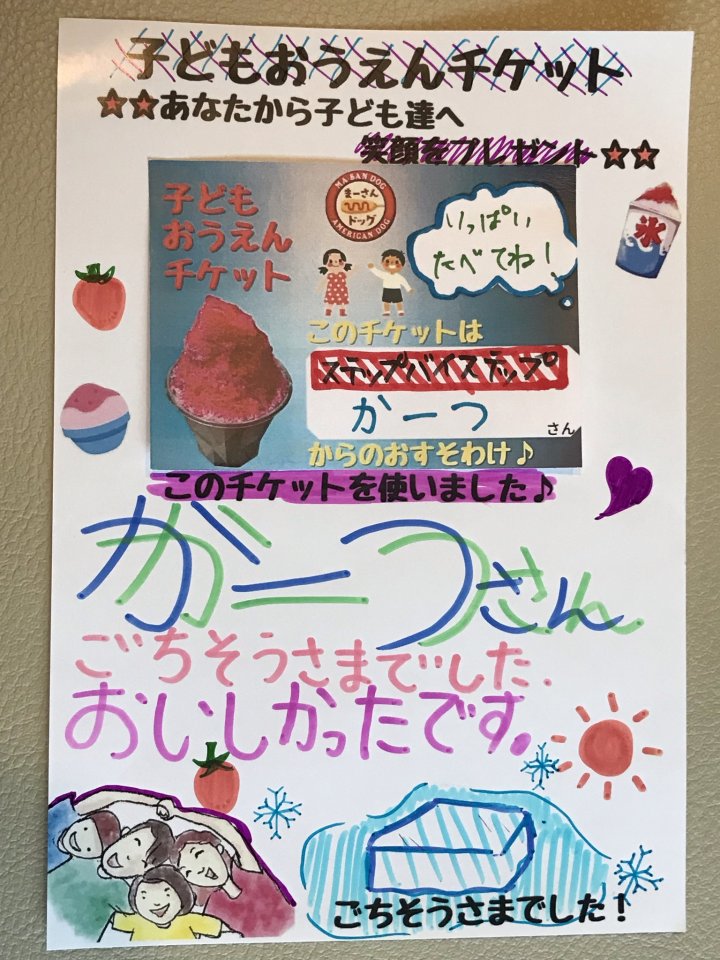 子どもおうえんチケット
★★あなたから子ども達へ
笑顔をプレゼント★★
子ども
おうえん
チケット
MA-SAN DOG
まーさん
ドッグ
AMERICAN DOG
いっぱい
たべてね!
氷
このチケットは
ステップバイステップ
かーつ
さん
からのおすそわけ♪
このチケットを使いました♪
かーつさん
ごちそうさまでした.
おいしかったです。
ごちそうさまでした!